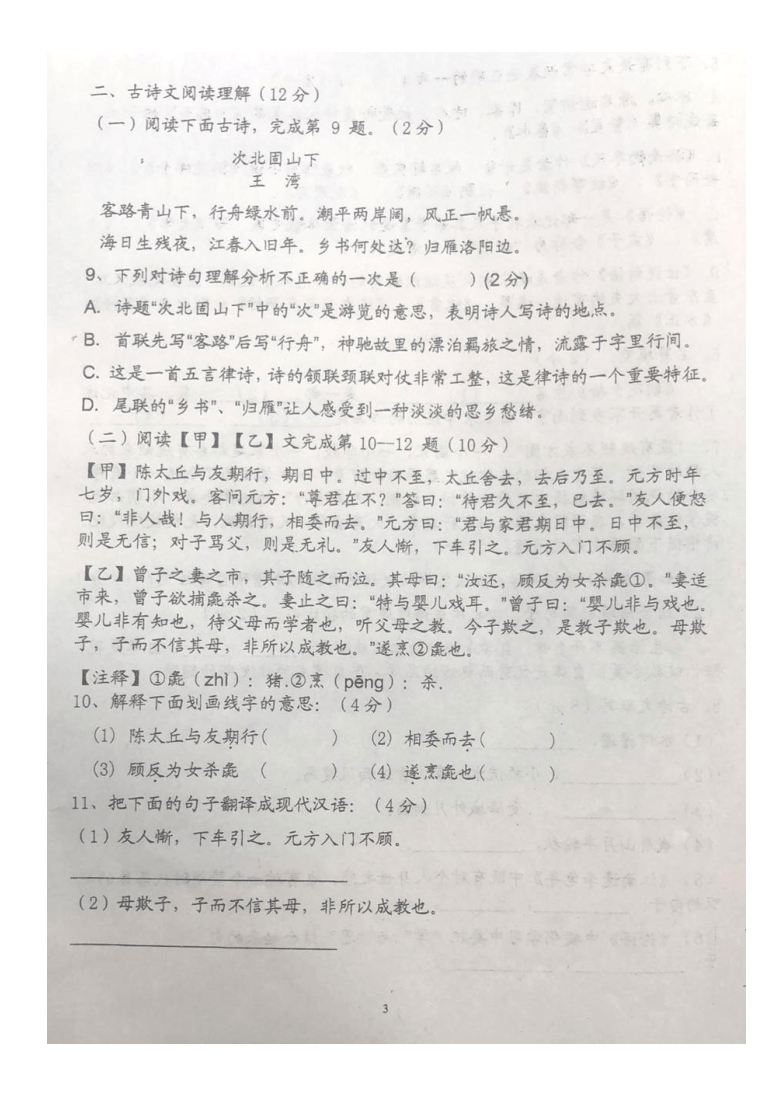 二、古诗文阅读理解(12分)
(一)阅读下面古诗,完成第 9 题。(2分)
次北固山下
王 湾
客路青山下,行舟绿水前。潮平两岸阔,风正一帆悬。
海日生残夜,江春入旧年。乡书何处达?归雁洛阳边。
9、下列对诗句理解分析不正确的一次是( )(2分)
A. 诗题“次北固山下”中的“次”是游览的意思,表明诗人写诗的地点。
B. 首联先写“客路”后写“行舟”,神驰故里的漂泊羁旅之情,流露于字里行间。
C. 这是一首五言律诗,诗的颔联颈联对仗非常工整,这是律诗的一个重要特征。
D. 尾联的“乡书”、“归雁”让人感受到一种淡淡的思乡愁绪。
(二)阅读【甲】【乙】文完成第10—12 题(10分)
【甲】陈太丘与友期行,期日中。过中不至,太丘舍去,去后乃至。元方时年
七岁,门外戏。客问元方:“尊君在不?”答曰:“待君久不至,已去。”友人便怒
曰:“非人哉!与人期行,相委而去。”元方曰:“君与家君期日中。日中不至,
则是无信;对子骂父,则是无礼。”友人惭,下车引之。元方入门不顾。
【乙】曾子之妻之市,其子随之而泣。其母曰:“汝还,顾反为女杀彘①。”妻适
市来,曾子欲捕彘杀之。妻止之曰:“特与婴儿戏耳。”曾子曰:“婴儿非与戏也。
婴儿非有知也,待父母而学者也,听父母之教。今子欺之,是教子欺也。母欺
子,子而不信其母,非所以成教也。”遂烹②彘也。
【注释】①彘(zhì):猪.②烹(pēng):杀.
10、解释下面划画线字的意思:(4分)
(1) 陈太丘与友期行( ) (2) 相委而去( )
(3) 顾反为女杀彘 ( ) (4) 遂烹彘也( )
11、把下面的句子翻译成现代汉语:(4分)
(1)友人惭,下车引之。元方入门不顾。
(2)母欺子,子而不信其母,非所以成教也。
3